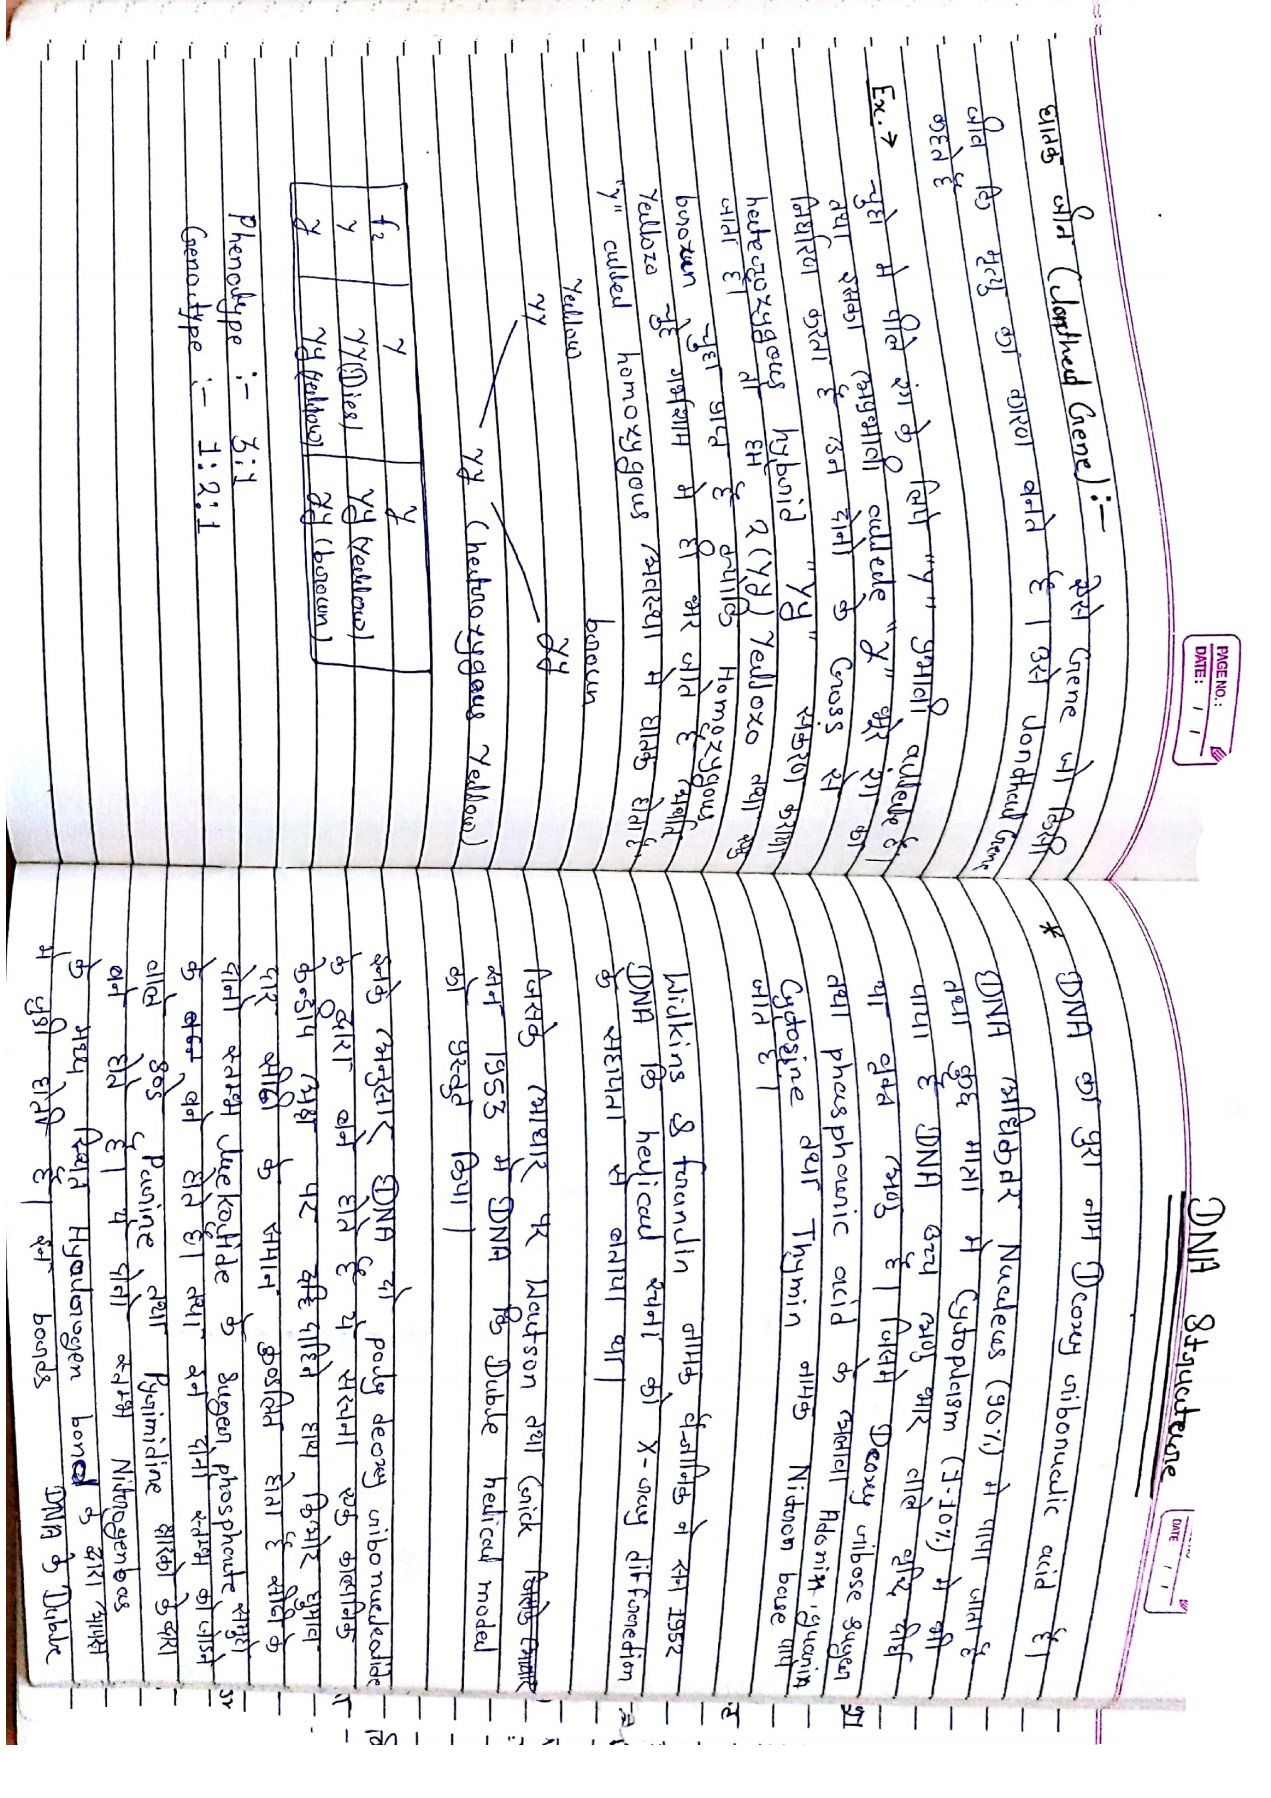 PAGE NO.:
DATE: / /
घातक जीन (Jontheal Gene) :- ऐसे Gene जो किसी
जीव कि मृत्यु का कारण बनते है। उसे Jonthal Gene
कहते है
Ex. → चुहो मे पीले रंग के लिये "Y" प्रभावी allele है।
तथा इसका अप्रभावी allele "y" भुरे रंग का
निर्धारण करता है उन दोनो के Cross से
heterozygous hybrid "Yy" संकरण कराया
जाता है। तो हमे 2 (Yy) Yellow तथा एक
brown चुहा प्राप्त है क्योकि Homozygous
Yellow चुहे गर्भाशय मे ही मर जाते है अर्थात
"Y" allel homozygous अवस्था मे घातक होता है
Yellow brown
Yy yy
Yy (heterozygous Yellow)
f2 Y y
Y YY (Dies) Yy (Yellow)
y Yy (Yellow) yy (brown)
Phenotype :- 3:1
Genotype :- 1:2:1
DNA Structure
DATE / /
* DNA का पुरा नाम Deoxy ribonuclic acid है।
DNA अधिकतर Nucleus (90%) मे पाया जाता है
तथा कुछ मात्रा मे Cytoplasm (1-10%) मे भी
पाया है DNA उच्च अणु भार वाले
या अणु है। जिसमे Deoxy ribose Suger
तथा phosphoric acid के अलावा Adenin, guanin
Cytosine तथा Thymin नामक Nitron base पाये
जाते है।
Wilkins & franclin नामक वैज्ञानिक ने सन 1952
DNA कि helical रचना को X-ray diffraction
के सहायता से बताया था।
जिसके आधार पर Watson तथा Crick
सन 1953 मे DNA कि Duble helical model
को प्रस्तुत किया।
इनके अनुसार DNA दो poly deoxy ribonucleotide
के द्वारा बने होते है ये संरचना एक काल्पनिक
केन्द्रीय अक्ष पर हाथ कि ओर घुमाव
दार सीढी के समान कुण्डलित होता है सीढी के
दोनो स्तम्भ neekotide के Suger phosphate समुहो
के बने होते है। तथा इन दोनो स्तम्भ को जोडने
वाले डन्डे Purine तथा Pyrimidine क्षारको के द्वारा
बने होते है। ये दोनो स्तम्भ Nitrogenbas
के मध्य स्थित Hydrorogen bond के द्वारा आपस
मे जुडी होती है। इन bonds DNA के Duble